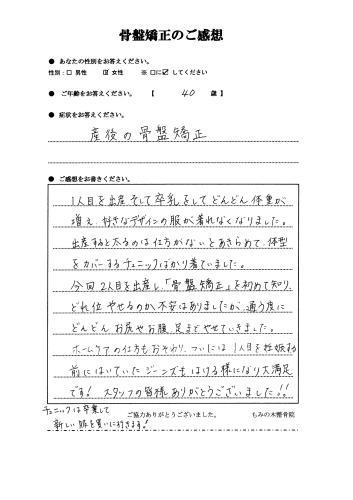 骨盤矯正のご感想
● あなたの性別をお答えください。
性別：□ 男性 ☑ 女性 ※ □に☑ してください
● ご年齢をお答えください。 【 40 歳 】
● 症状をお答えください。
産後の骨盤矯正
● ご感想をお書きください。
1人目を出産そして卒乳をしてどんどん体重が
増え、好きなデザインの服が着れなくなりました。
出産すると太るのは仕方がないとあきらめて、体型
をカバーするチュニックばかり着ていました。
今回2人目を出産し、「骨盤矯正」を初めて知り、
どれ位やせるのか不安はありましたが、通う度に
どんどんお尻やお腹、足までやせていきました。
ホームケアの仕方もおそわり、ついには1人目を妊娠する
前にはいていたジーンズもはける様になり大満足
です! スタッフの皆様ありがとうございました!!
チュニックは卒業して
新しい服を買いに行きます!
ご協力ありがとうございました。 もみの木整骨院